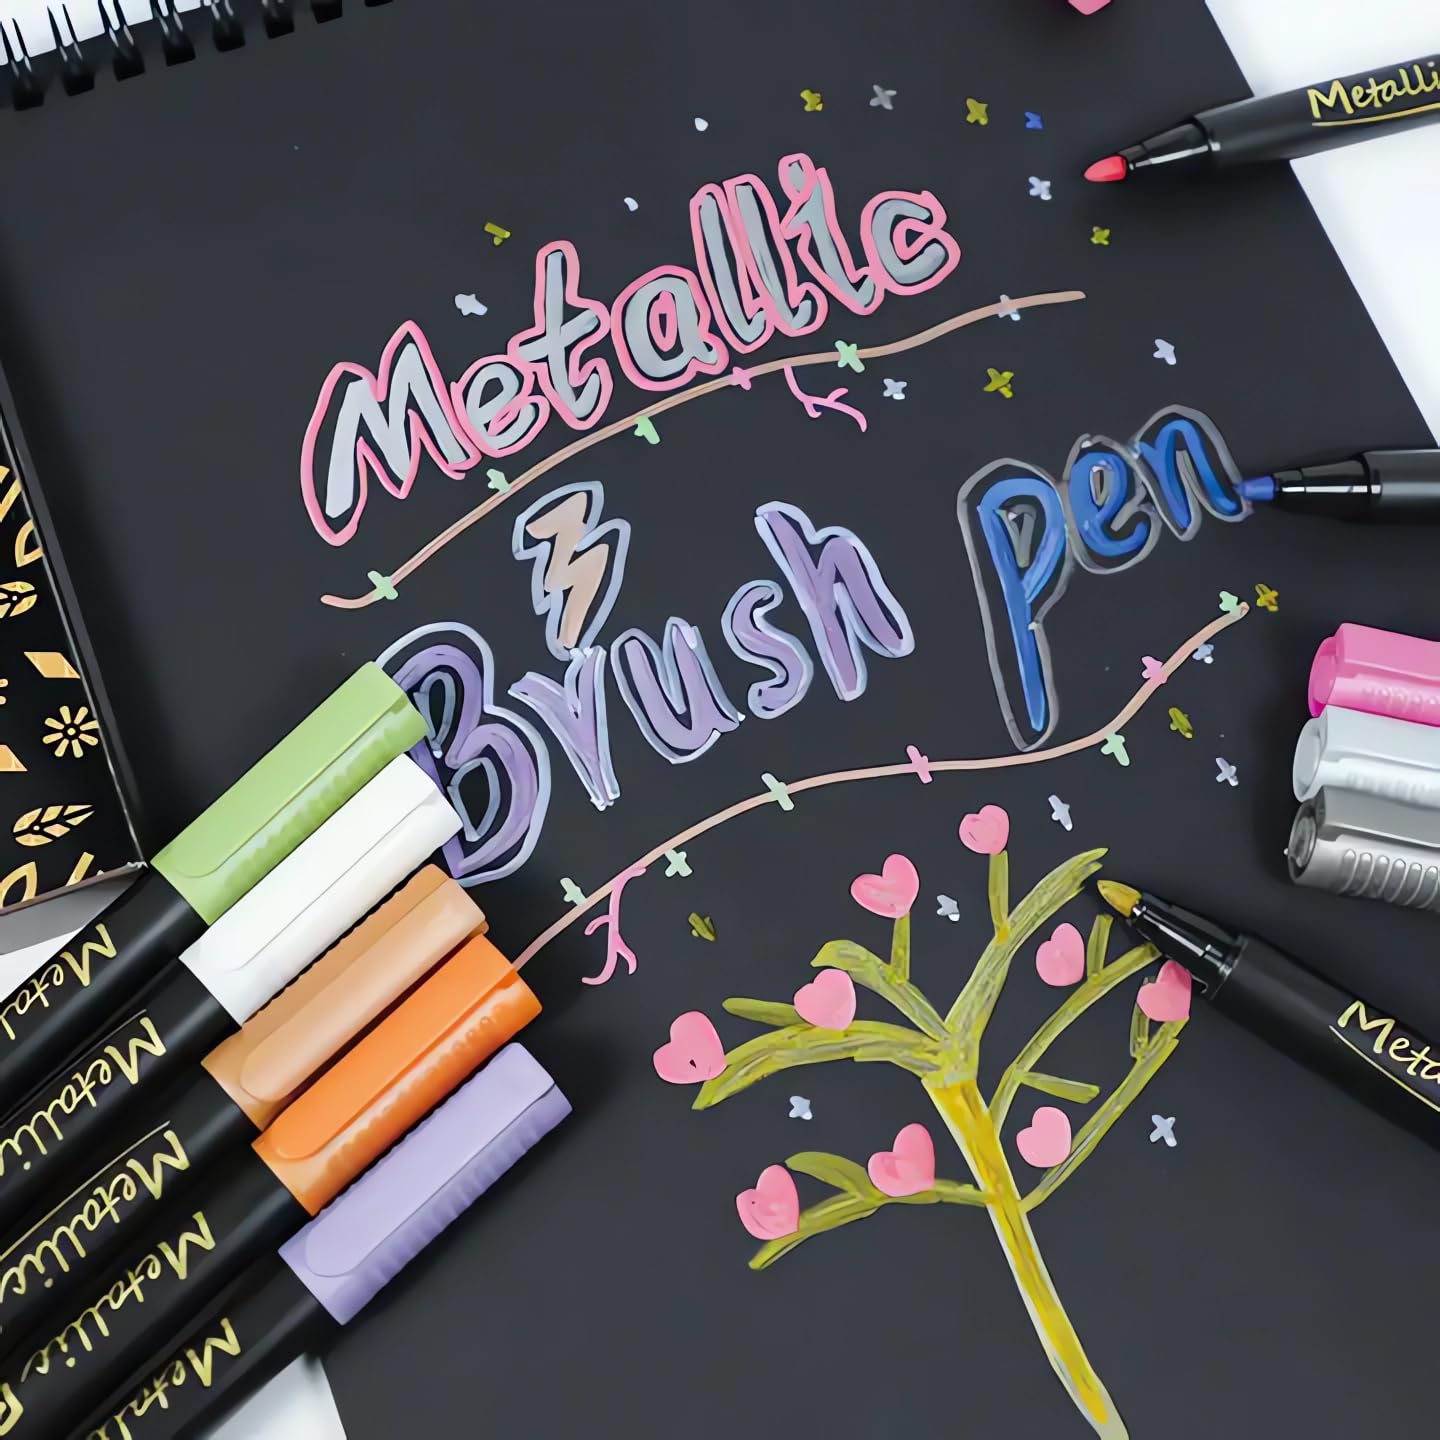 Metallic
Brush Pen
Metalli
Meta
Metal
Metallic
Metallic
Metallic
Metall